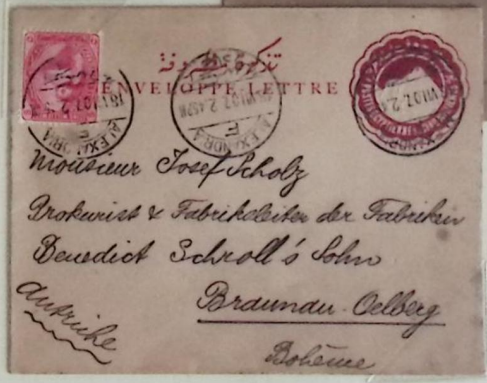 تذكرة مظروفة
ENVELOPPE LETTRE
ALEXANDRIA
ALEXANDRIA
Monsieur Josef Scholz
Prokurist & Fabriksleiter der Fabriken
Benedict Schroll's Sohn
Braunau-Oelberg
Autriche
Bohême